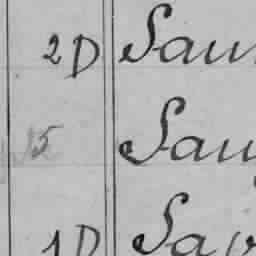 2D Sau
15 Sau
1D Sav